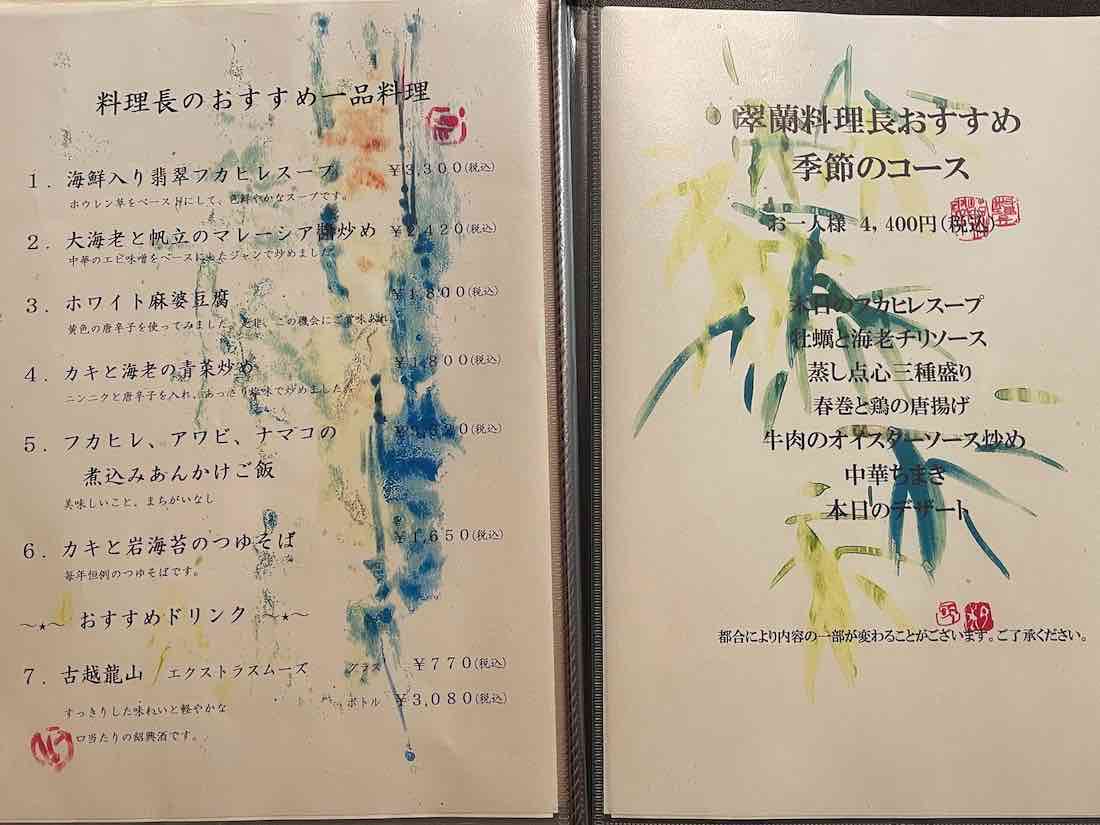 料理長のおすすめ一品料理
1. 海鮮入り翡翠フカヒレスープ ¥3,300(税込)
ホウレン草をベースにして、色鮮やかなスープです。
2. 大海老と帆立のマレーシア醬炒め ¥2,420(税込)
中華のエビ味噌をベースにしたジャンで炒めました。
3. ホワイト麻婆豆腐 ¥1,800(税込)
黄色の唐辛子を使ってみました。是非、この機会にご賞味あれ
4. カキと海老の青菜炒め ¥1,800(税込)
ニンニクと唐辛子を入れ、あっさり塩味で炒めました。
5. フカヒレ、アワビ、ナマコの (税込)
煮込みあんかけご飯
美味しいこと、まちがいなし
6. カキと岩海苔のつゆそば ¥1,650(税込)
毎年恒例のつゆそばです。
～★～ おすすめドリンク ～★～
7. 古越龍山 エクストラスムーズ グラス ¥770(税込)
ボトル ¥3,080(税込)
すっきりした味わいと軽やかな
口当たりの紹興酒です。
翠蘭料理長おすすめ
季節のコース
お一人様 4,400円(税込)
本日のフカヒレスープ
牡蠣と海老チリソース
蒸し点心三種盛り
春巻と鶏の唐揚げ
牛肉のオイスターソース炒め
中華ちまき
本日のデザート
都合により内容の一部が変わることがございます。ご了承ください。